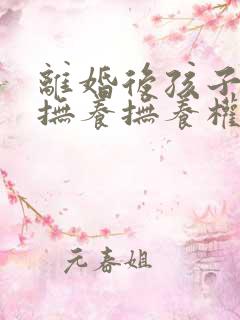 離婚後孩子
撫養撫養權
元春姐